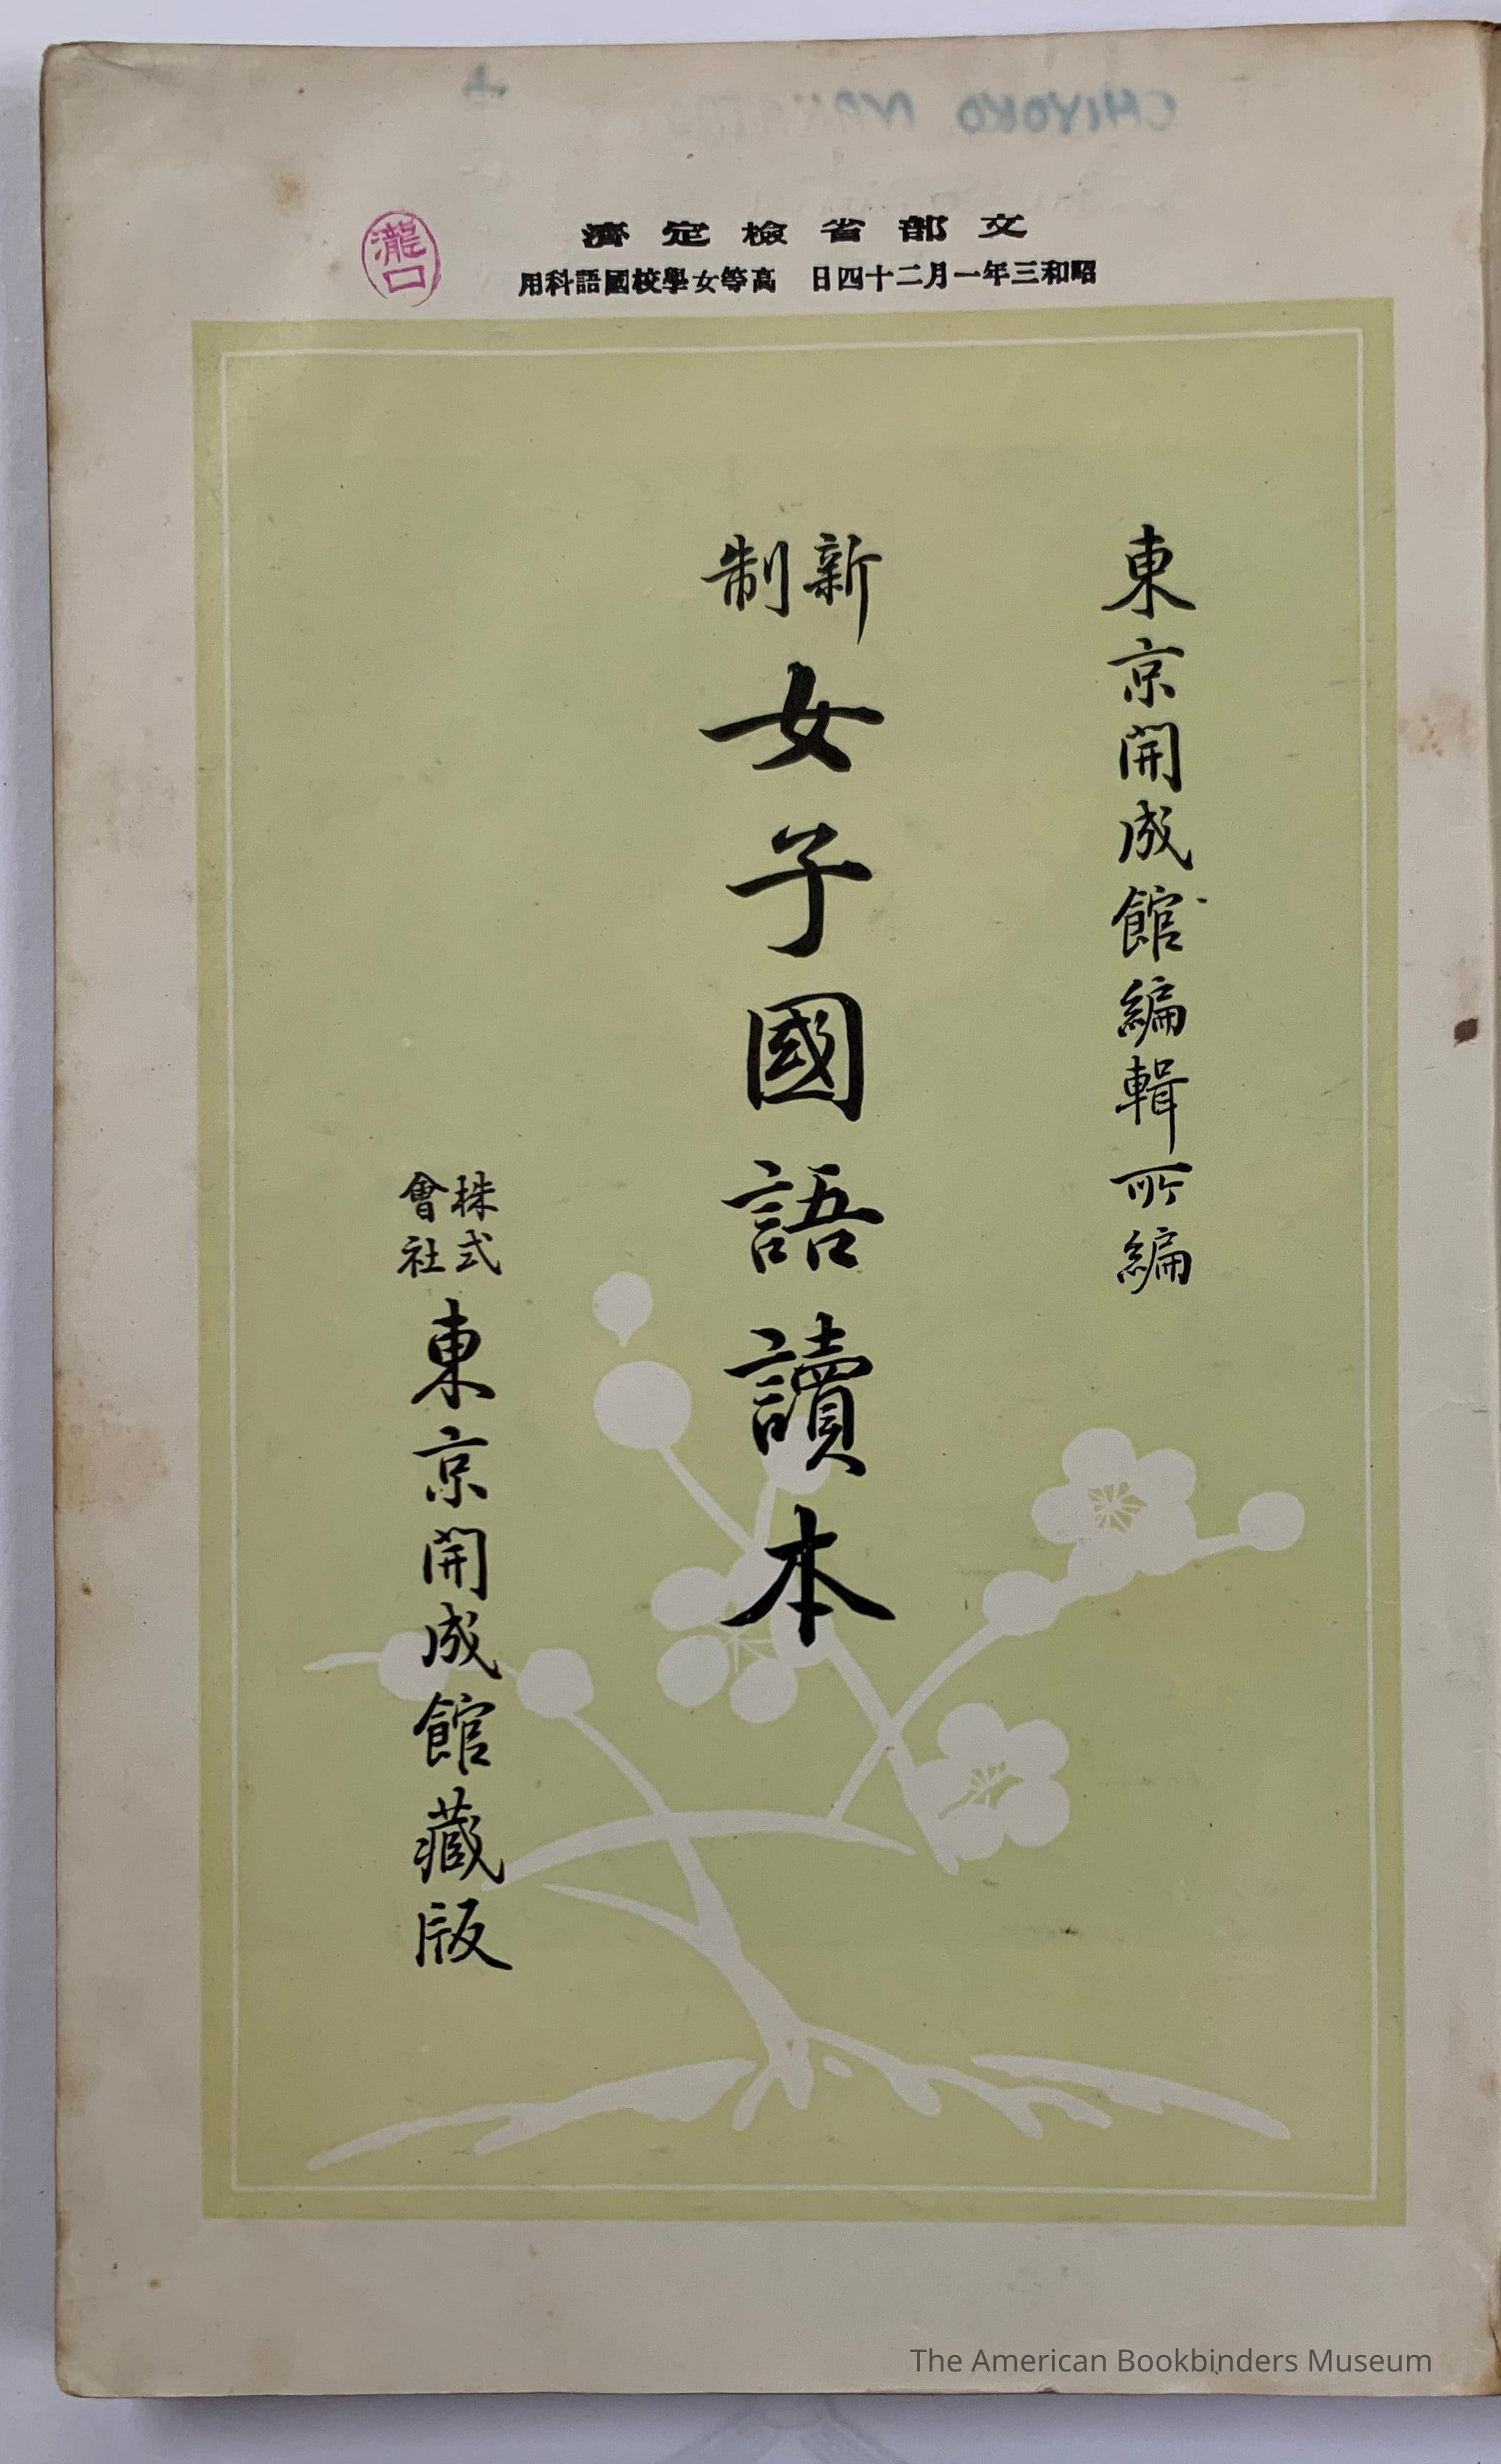 文部省檢定濟
昭和三年一月二十四日 高等女學校國語科用
瀧口
東京開成館編輯所編
新制
女子國語讀本
株式會社
東京開成館藏版
CHIYOKO
The American Bookbinders Museum